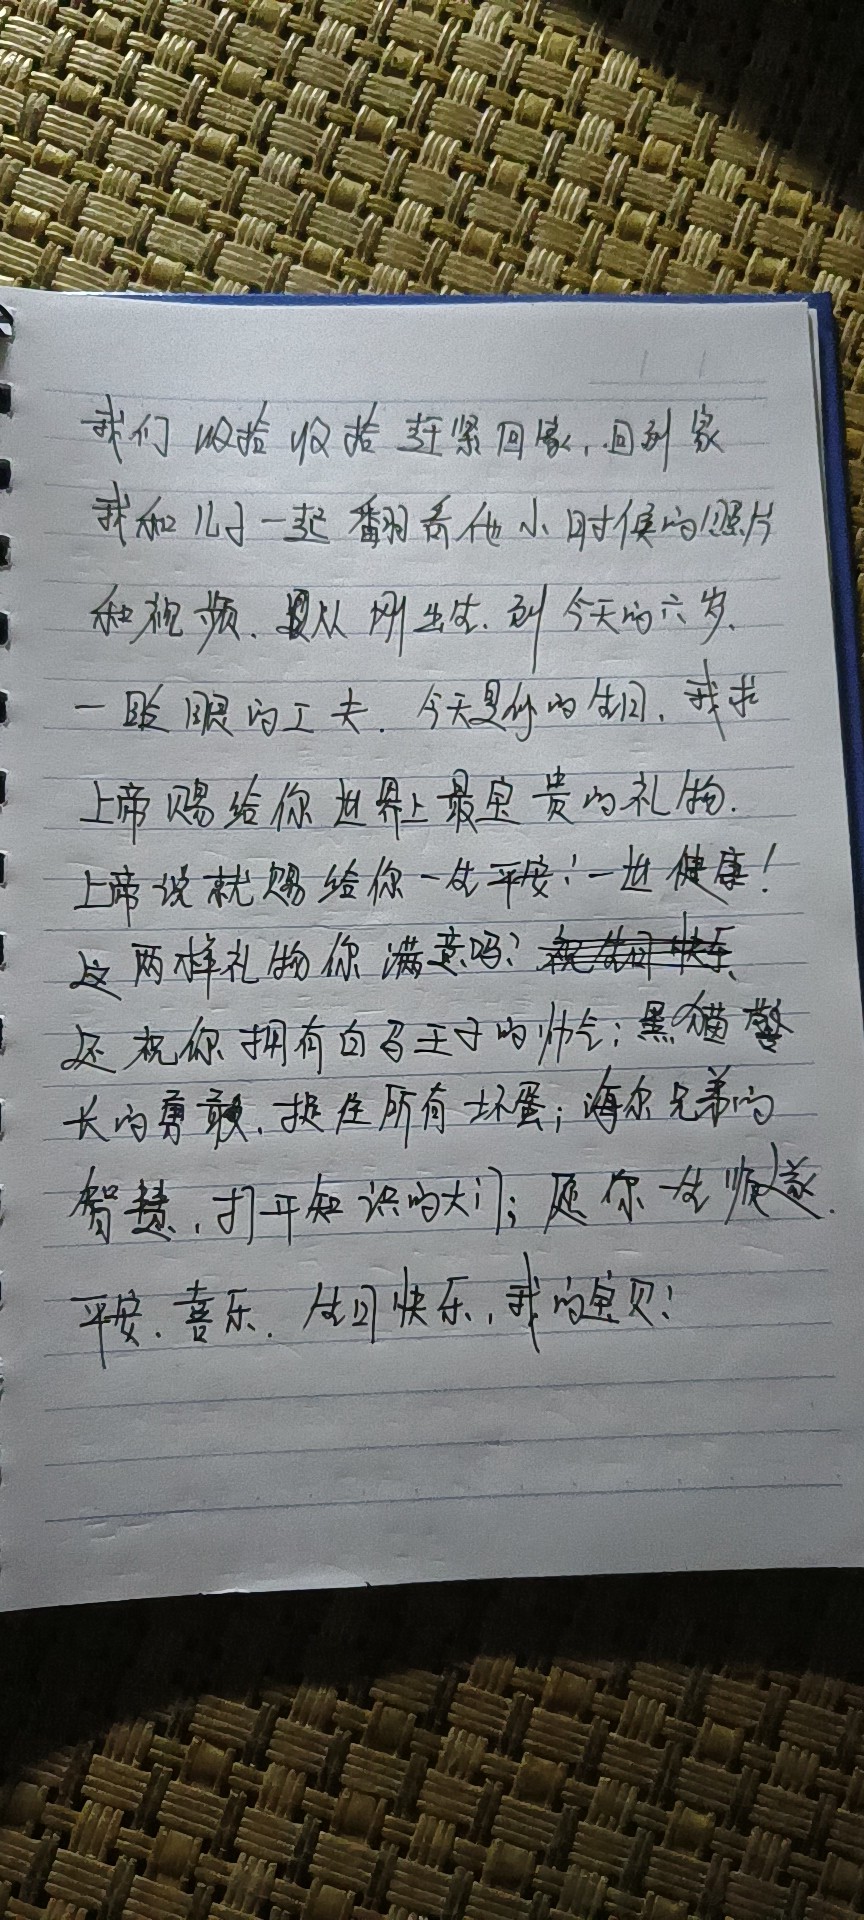 我们收拾收拾赶紧回家,回到家
我和儿子一起翻看他小时候的照片
和视频.从刚出生.到今天的六岁.
一眨眼的工夫.今天是你的生日,我求
上帝赐给你世界上最宝贵的礼物.
上帝说就赐给你一生平安!一世健康!
这两样礼物你满意吗?祝生日快乐
还祝你拥有白马王子的帅气;黑猫警
长的勇敢.捉住所有坏蛋;海尔兄弟的
智慧,打开知识的大门;愿你一生顺遂.
平安.喜乐.生日快乐,我的宝贝!